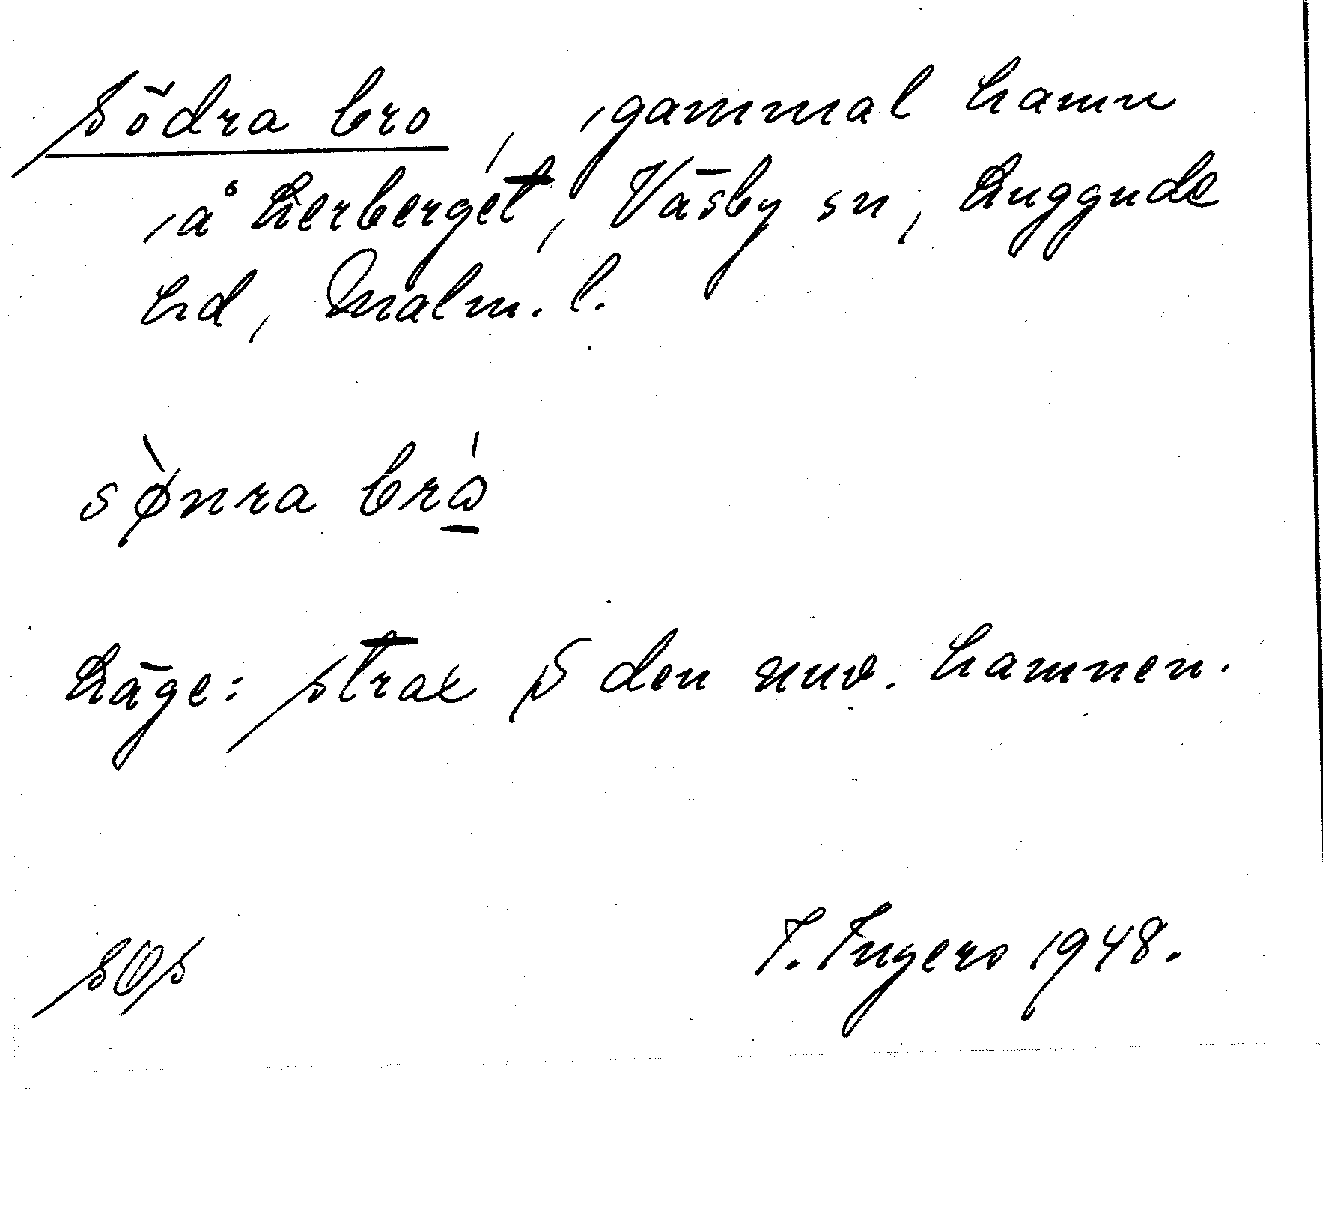 Södra bro, gammal hamn
å Lerberget, Väsby sn, Luggude
hd, Malm. l.
sø̀nra brώ
Läge: strax S den nuv. hamnen.
SOS I. Ingers 1948.